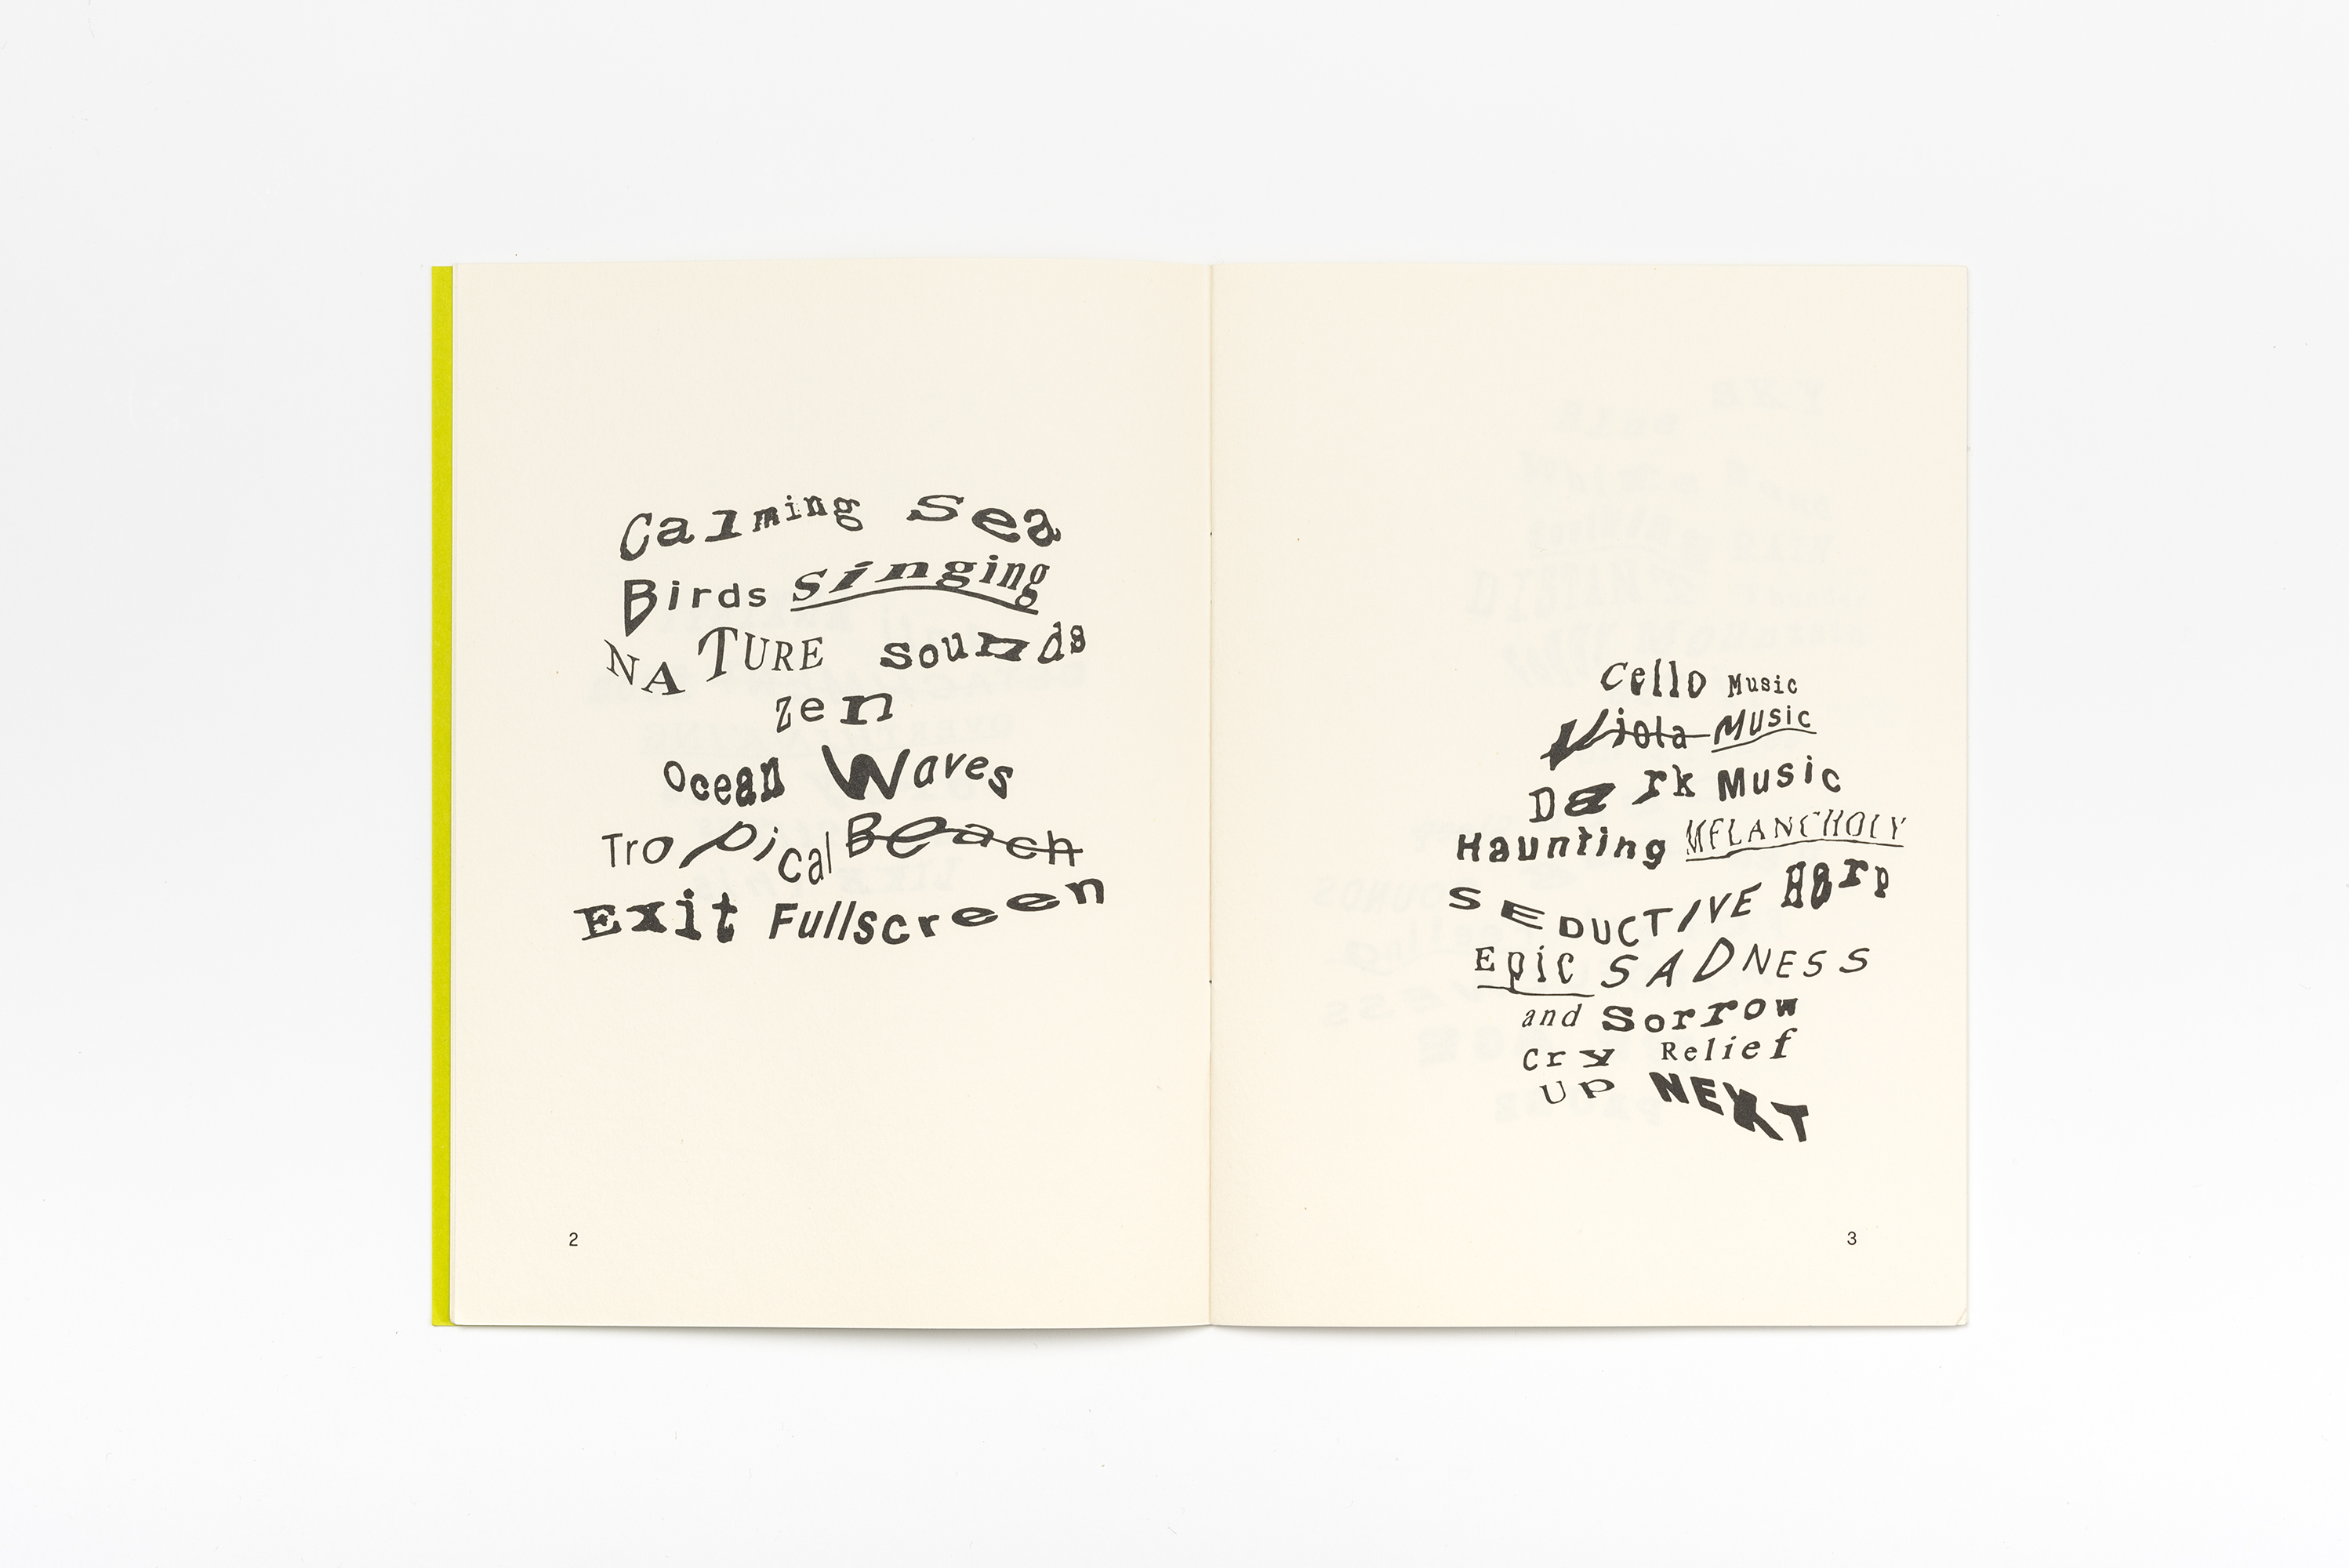 Calming Sea
Birds Singing
NATURE sounds
zen
Ocean Waves
Tropical Beach
Exit Fullscreen
2
Cello Music
Viola Music
Dark Music
Haunting MELANCHOLY
SEDUCTIVE Harp
Epic SADNESS
and Sorrow
Cry Relief
UP NEXT
3